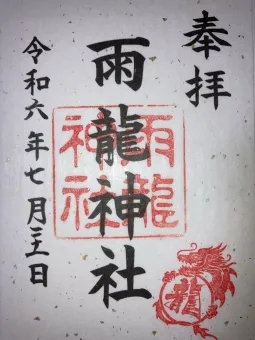 奉拝
雨龍神社
令和六年七月三十一日
雨龍
神社
龍